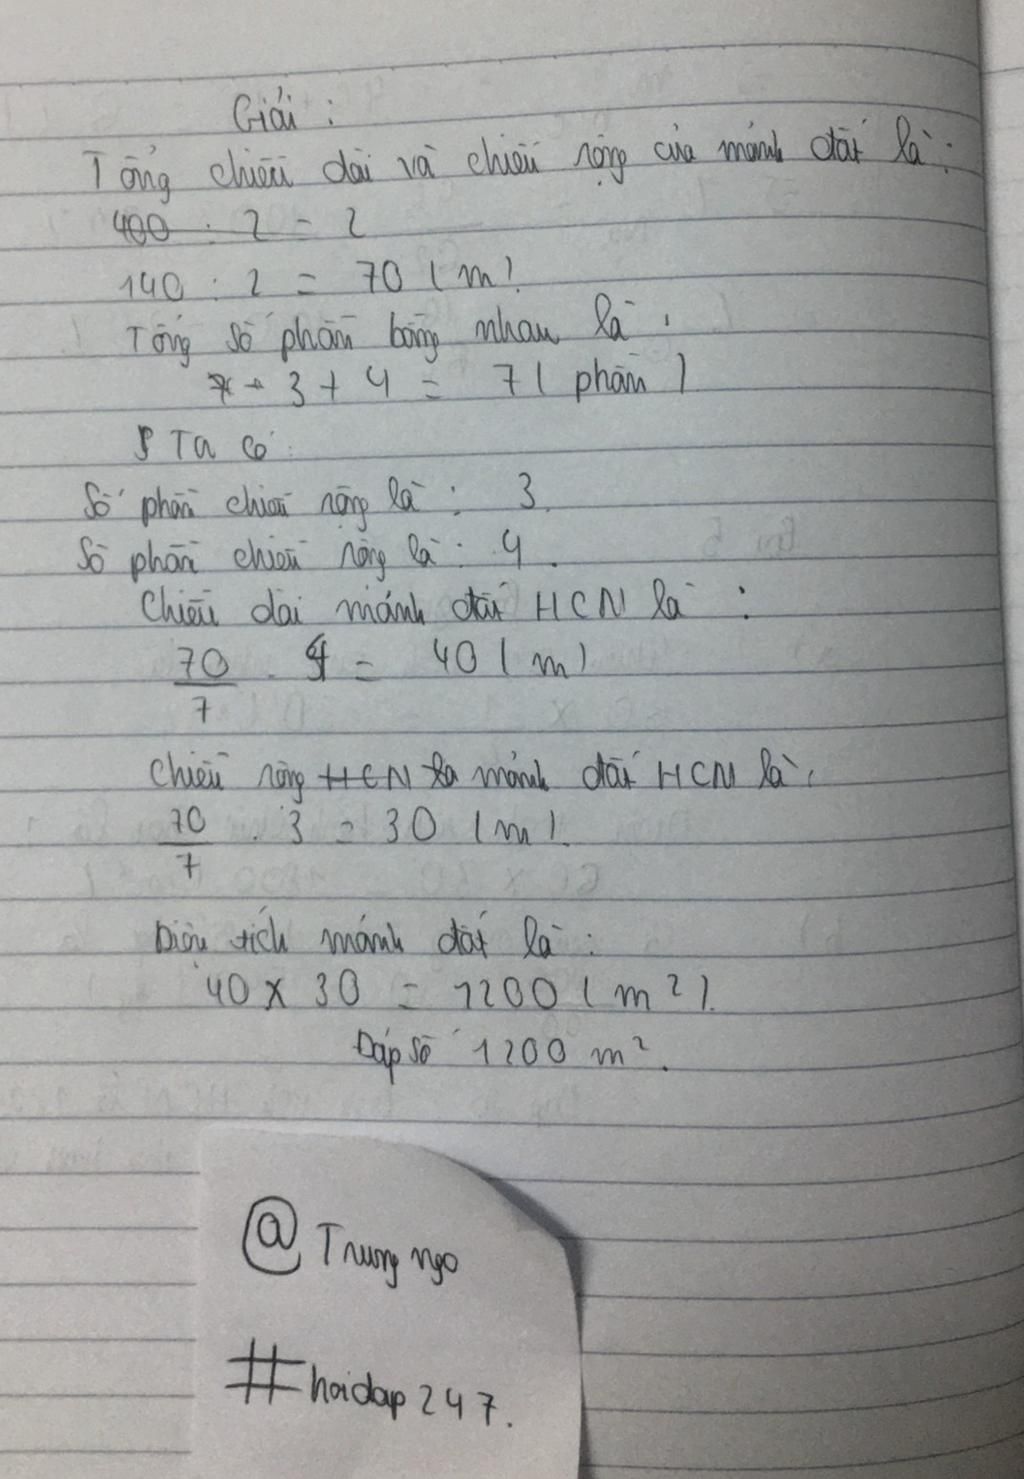 Giải :
Tổng chiều dài và chiều rộng của mảnh đất là :
400 : 2 = 2
140 : 2 = 70 ( m )
Tổng số phần bằng nhau là :
3 + 4 = 7 ( phần )
Ta có :
Số phần chiều rộng là : 3.
Số phần chiều rộng là : 4.
Chiều dài mảnh đất HCN là :
70/7 . 4 = 40 ( m )
Chiều rộng HCN là mảnh đất HCN là :
70/7 . 3 = 30 ( m ).
Diện tích mảnh đất là :
40 x 30 = 1200 ( m² ).
Đáp số 1200 m².
@ Trung ngo
# hoidap247.